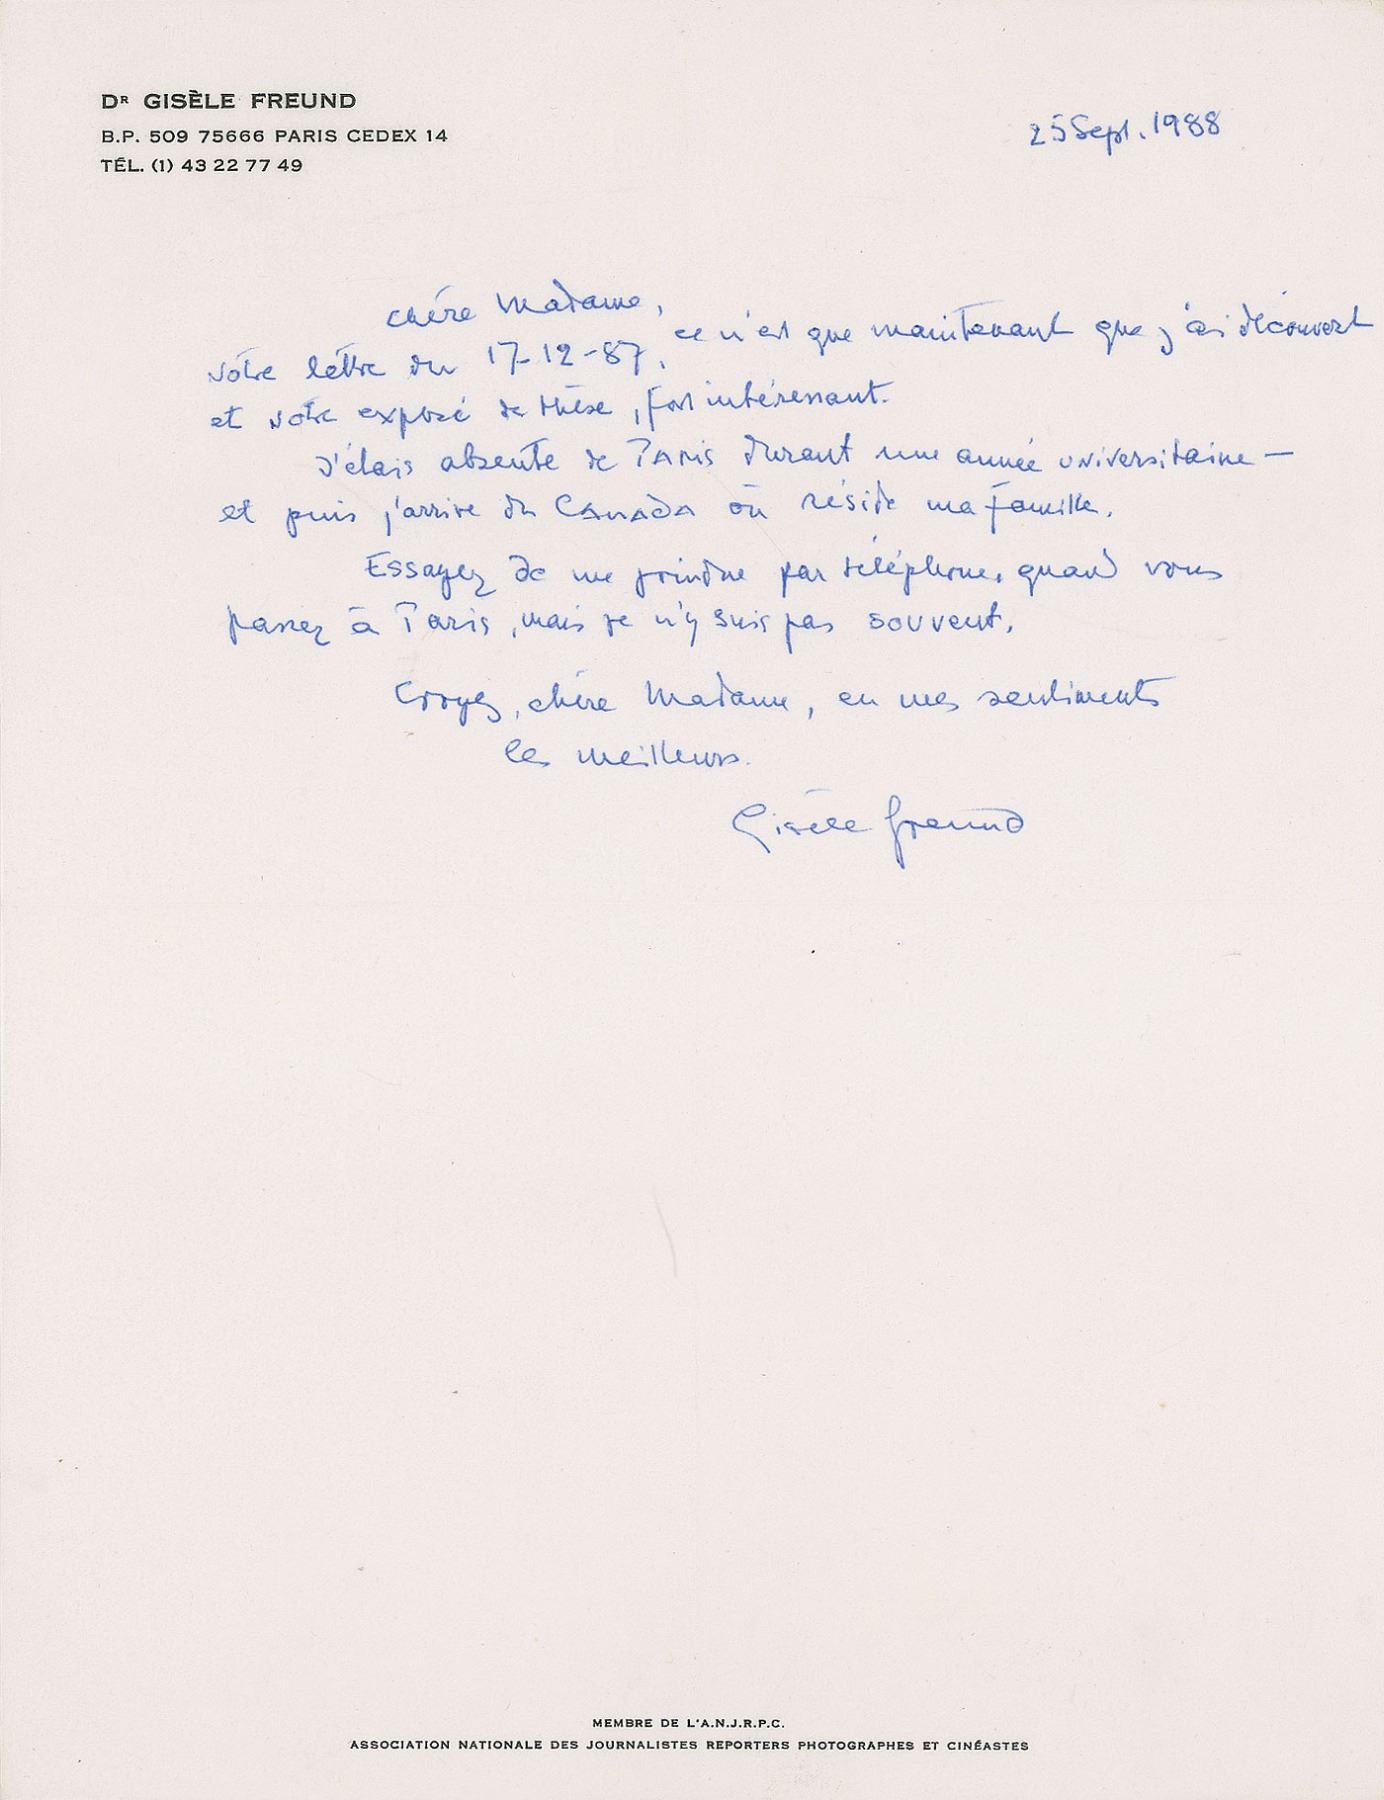 Dr GISÈLE FREUND
B.P. 509 75666 PARIS CEDEX 14
TÉL. (1) 43 22 77 49
25 Sept. 1988
chère Madame,
ce n'est que maintenant que j'ai découvert
votre lettre du 17-12-87,
et votre exposé de thèse, fort intéressant.
J'étais absente de Paris durant une année universitaire —
et puis j'arrive du CANADA où réside ma famille.
Essayez de me joindre par téléphone, quand vous
passez à Paris, mais je n'y suis pas souvent.
Croyez, chère Madame, en mes sentiments
les meilleurs.
Gisèle Freund
MEMBRE DE L'A.N.J.R.P.C.
ASSOCIATION NATIONALE DES JOURNALISTES REPORTERS PHOTOGRAPHES ET CINÉASTES